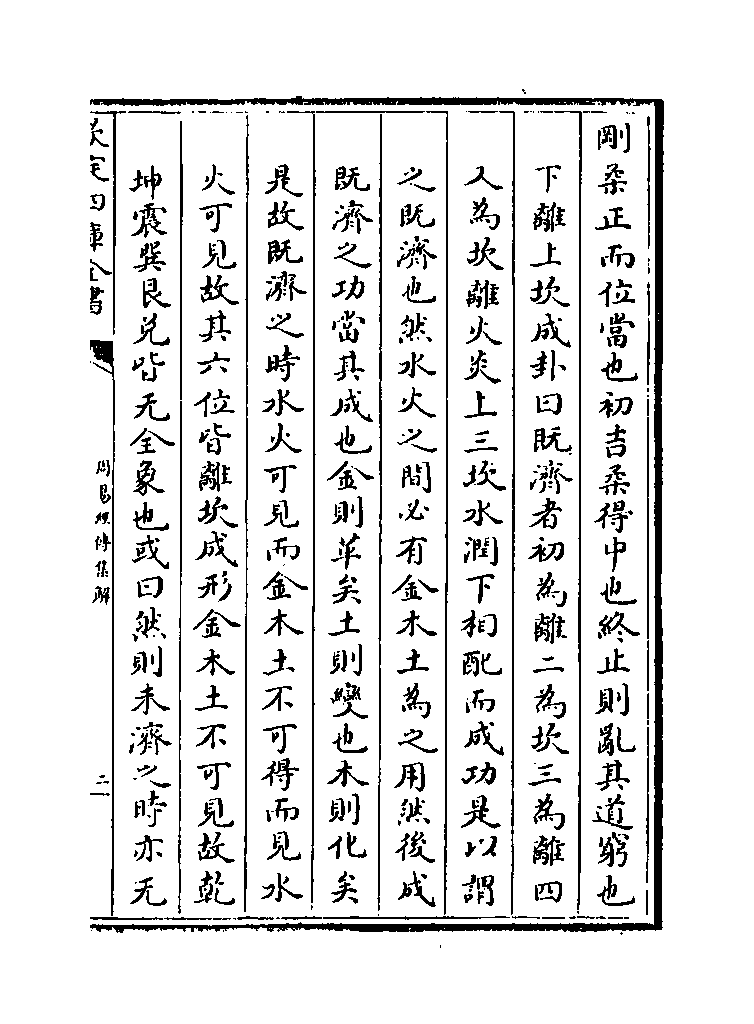 剛柔正而位當也初吉柔得中也終止則亂其道窮也
下離上坎成卦曰既濟者初為離二為坎三為離四
入為坎離火炎上三坎水潤下相配而成功是以謂
之既濟也然水火之間必有金木土為之用然後成
既濟之功當其成也金則革矣土則變也木則化矣
是故既濟之時水火可見而金木土不可得而見水
火可見故其六位皆離坎成形金木土不可見故乾
坤震巽艮兌皆无全象也或曰然則未濟之時亦无
欽定四庫全書
周易經傳集解
二